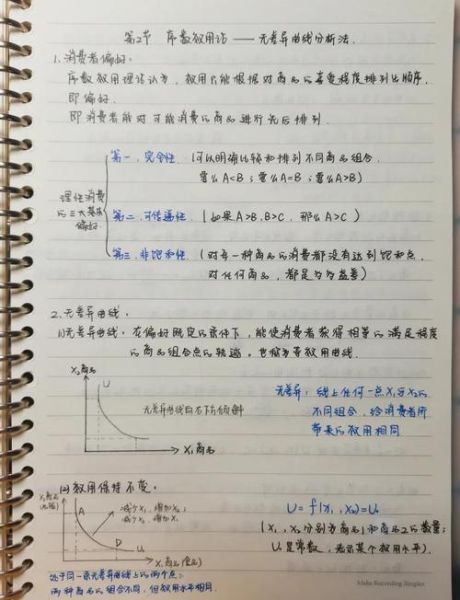 第2节 序数效用论——无差异曲线分析法.
1.消费者偏好.
序数效用理论认为,效用只能根据对商品的喜爱程度排列出顺序.
即偏好.
即消费者能对可能消费的商品进行先后排列.
第一,完全性.(可以明确比较和排列不同商品组合.
要么A<B;要么A=B;要么A>B)
理性消费
的三大基本
偏好.
第二,可传递性(如果A>B,B>C,那么A>C)
第三,非饱和性(对每一种商品的消费都没有达到饱和点,
对任何商品,都是多多益善)
2.无差异曲线.
(1)无差异曲线:在偏好既定的条件下,能使消费者获得相等的满足程度
的商品组合点的轨迹,也称为等效用曲线.
X₂商品
U
无差异曲线向右下方倾斜
X₁商品
无差异:线上任何一点X₁与X₂的
不同组合,给消费者所
带来的效用相同
(2)效用保持不变.
X₂商品
A
减少X₁,增加X₂;
减少X₂,增加X₁
D
U₀
X₁商品
U=f(X₁,X₂)=U₀
(X₁,X₂分别为商品1和商品2的数量;
U₀是常数,表示某个效用水平).
处于同一条无差异曲线上的两个点:
两种商品的组合不同,但效用水平相同.
Make Recording Simpler